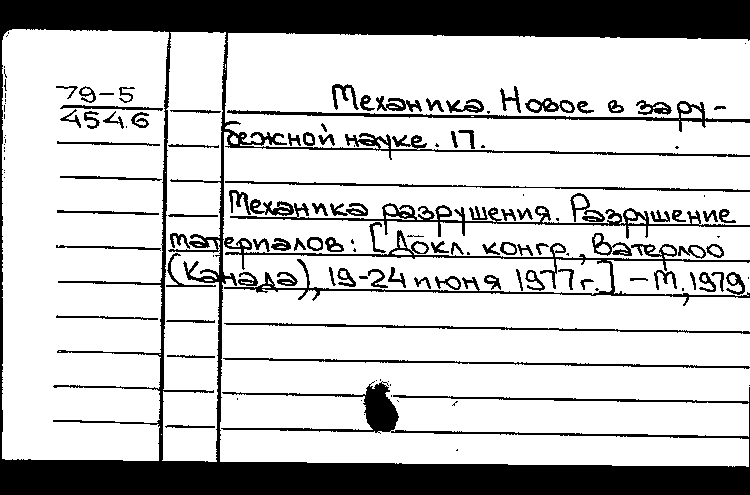 79-5
4546
Механика. Новое в зару-
бежной науке. 17.
Механика разрушения. Разрушение
материалов: [Докл. конгр., Ватерлоо
(Канада), 19-24 июня 1977 г.] - М., 1979.